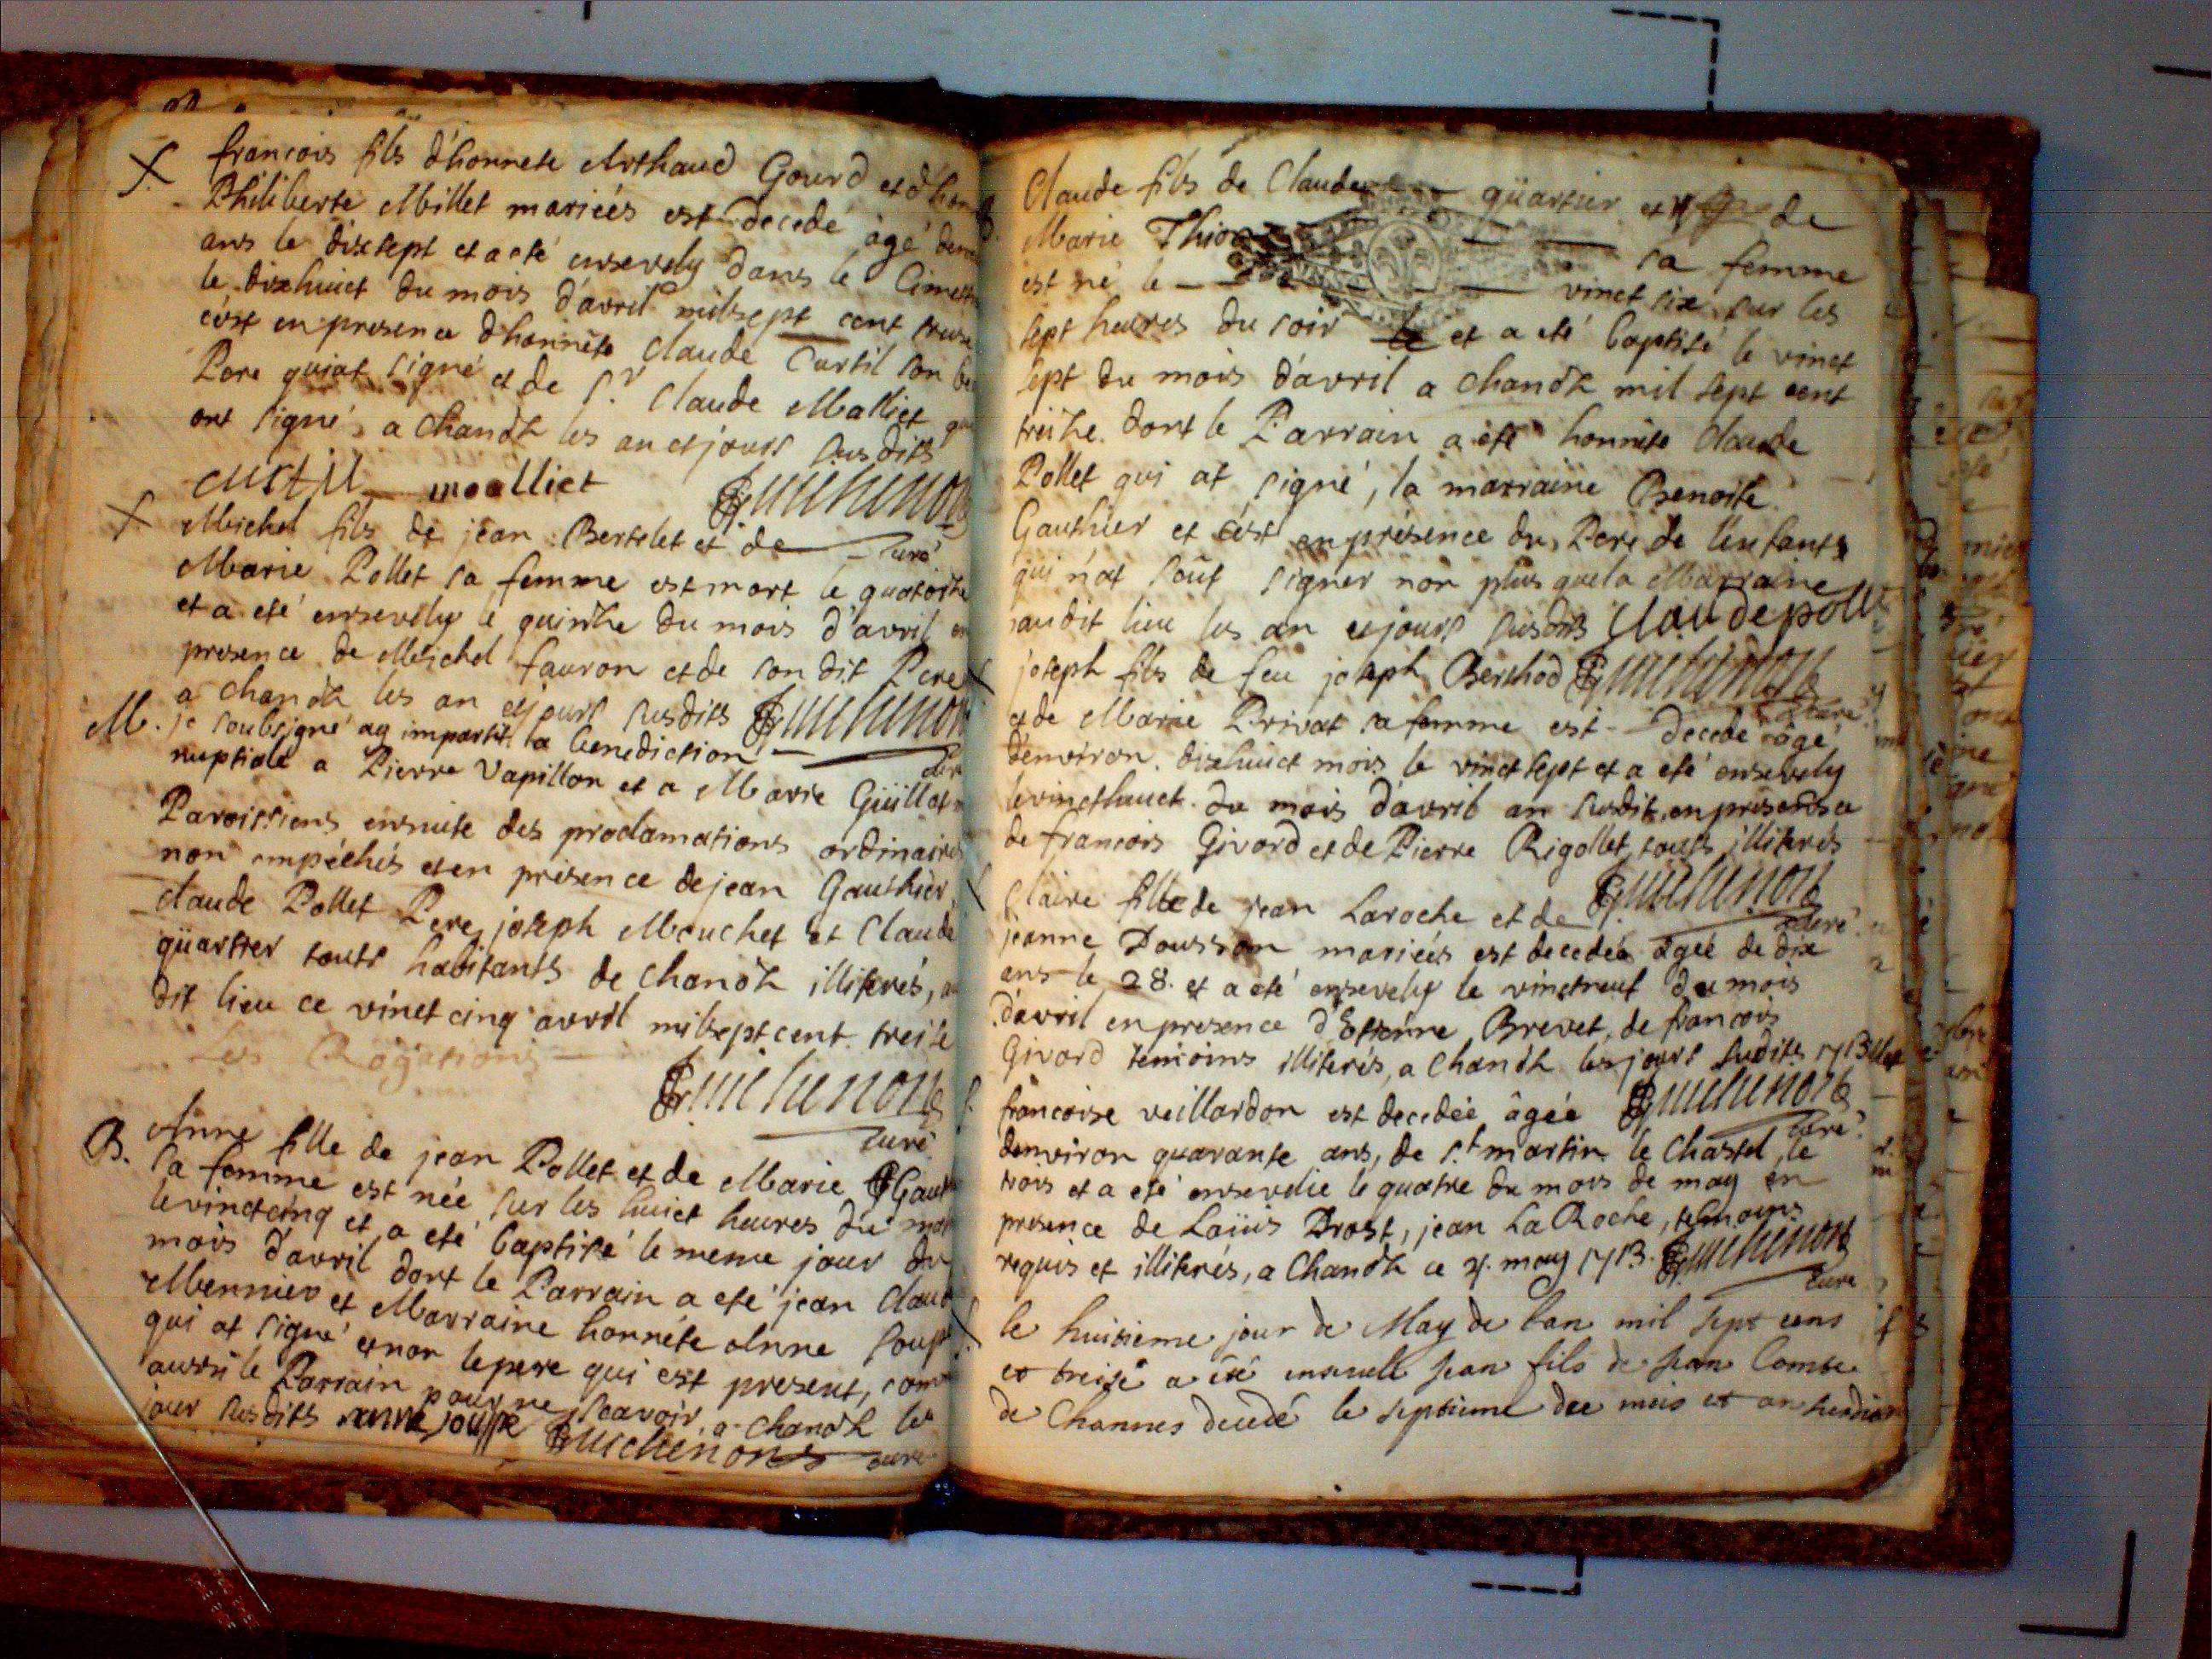 francois fils d'honnete Arthaud Gourd et d'hon
Philiberte Millet mariés est decedé àgé
ans le dixsept et a eté ensevely dans le Cimet
le dixhuict du mois d'avril mil sept cent treise
c'est en presence d'honnête Claude Curtil son
Pere qui at signé et de Sr Claude Malliet
ont signé, a Chanoz les an et jours susdits
curtil malliet Guichenon
Michel fils de jean Bertelet et de curé
Marie Pollet sa femme est mort le quatorze
et a eté ensevely le quinze du mois d'avril en
presence de Michel fauron et de son dit Pere
a chanoz les an et jours susdits Guichenon
M. je soubsigné ay imparti la benediction
nuptiale a Pierre Vapillon et a Marie Guillot
Paroissiens ensuite des proclamations ordinaires
non empêchés et en présence de jean Gauthier,
claude Pollet Pere, joseph Mouchet et Claude
quartier touts habitants de chanoz illiterés, au
dit lieu ce vinct cinq avril mil sept cent treise
Les Rogations
Guichenon
curé
B. Anne fille de jean Pollet et de Marie Gaut
sa femme est née sur les huict heures du mat
le vinctcinq et a eté baptisé le meme jour du
mois d'avril dont le Parrain a eté jean Claude
Mennier et Marraine honnéte Anne
qui at signé et non le pere qui est present, com
aussi le Parrain pour ne scavoir, a chanoz les
jour susdits anne jouffe Guichenon curé
Claude fils de Claude quartier et de
Marie Thio sa femme
est né le vinct six sur les
sept heures du soir et a eté baptisé le vinct
sept du mois d'avril a chanoz mil sept cent
treize. dont le Parrain a été honnête Claude
Pollet qui at signé, la marraine Benoite
Gauthier et c'est en présence du Pere de l'enfant
qui n'at sçut signer non plus que la Marraine
audit lieu les an et jours susdits Claude pollet
joseph fils de feu joseph Berthod Guichenon
et de Marie Privat sa femme est decedé àgé curé
d'environ dixhuict mois le vinct sept et a eté ensevely
le vincthuict du mois d'avril an susdit, en présence
de francois Givord et de Pierre Rigollet touts illiterés
Claire fille de jean Laroche et de Guichenon
jeanne Dousson mariés est decedée àgée de dix curé
ans le 28. et a eté ensevely le vinctneuf du mois
d'avril en presence d'Estienne Brevet, de francois
Givord temoins illiterés, a Chanoz les jours susdits 1713
francoise veillardon est decedée àgée Guichenon
d'environ quarante ans, de St martin le Chastel, le curé
trois et a eté ensevelie le quatre du mois de may en
presence de Loüis Prost, jean La Roche, temoins
requis et illiterés, a Chanoz ce 4. may 1713. Guichenon
curé
le huitieme jour de May de lan mil sept cens
et treise a été enseveli Jean fils de Jean Combe
de Channes decedé le septieme du mois et an susdit